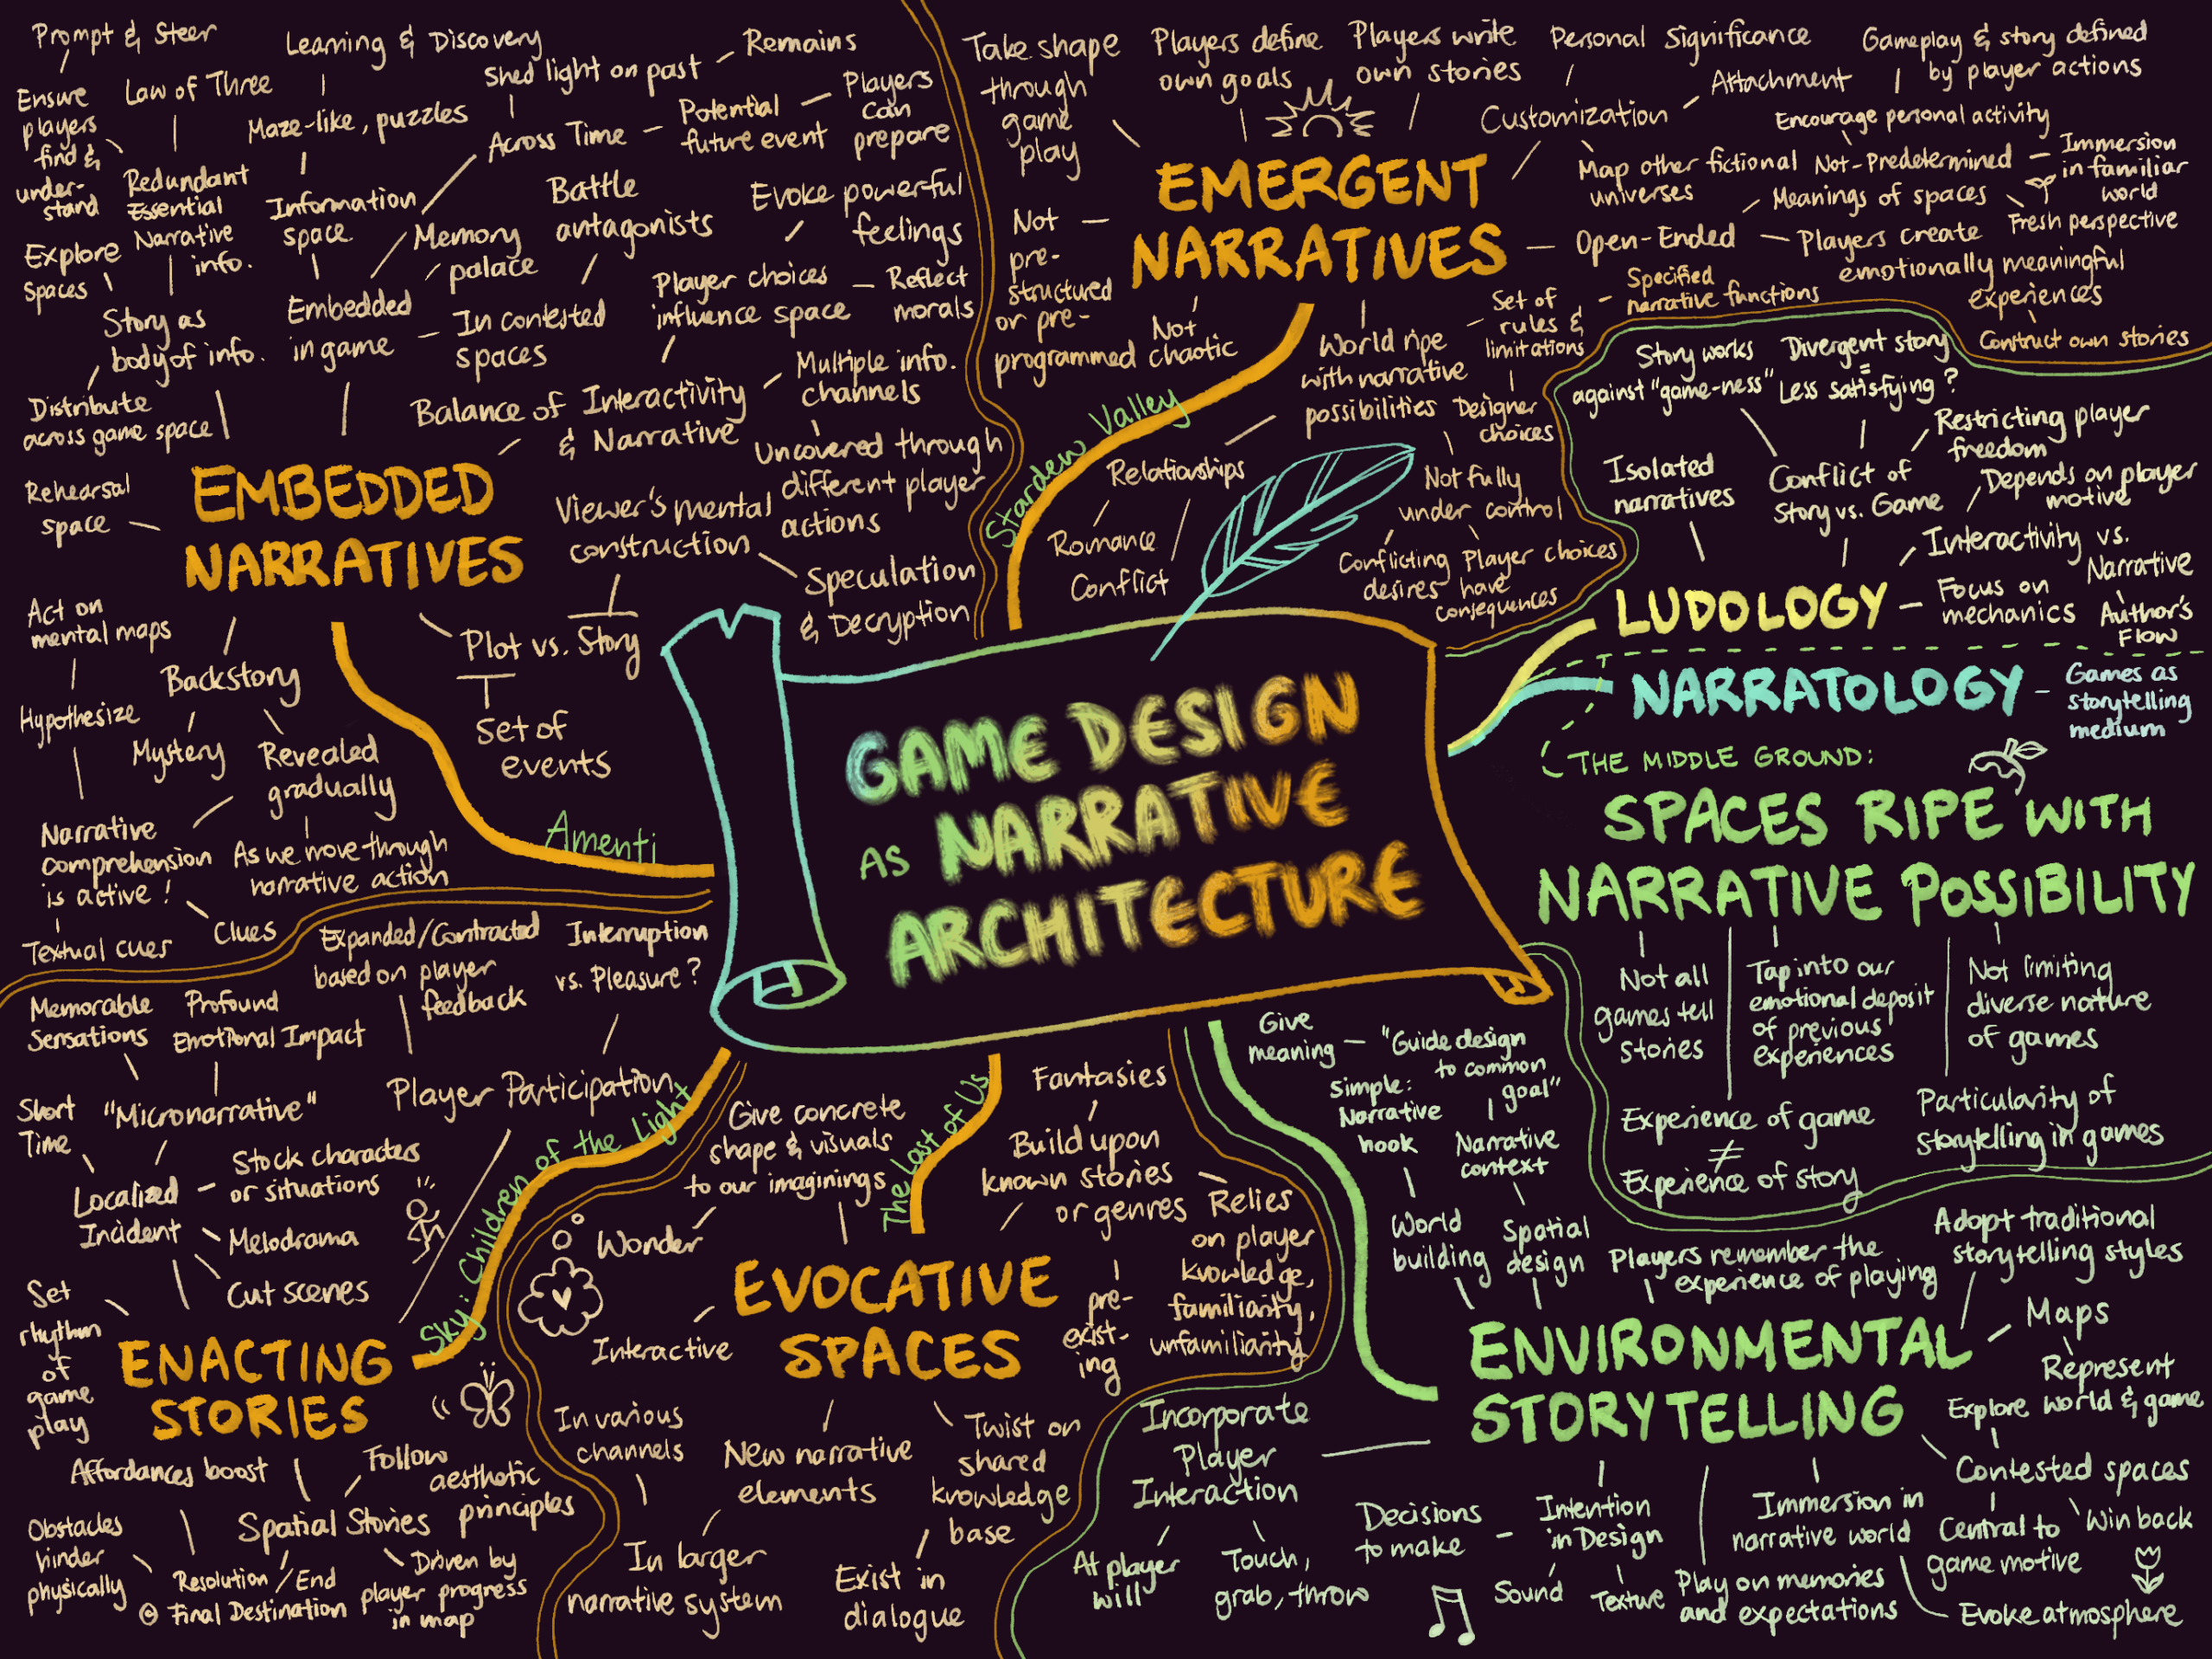 GAME DESIGN
AS NARRATIVE
ARCHITECTURE
Prompt & Steer
Ensure
players
find &
under-
stand
Law of Three
Redundant
Essential
Narrative
info.
Explore
Spaces
Story as
body of info.
Distribute
across game space
Rehearsal
space
Learning & Discovery
Maze-like, puzzles
Information
space
Embedded
in game
Memory
palace
Shed light on past
Remains
Across Time
Potential
future event
Players
can
prepare
Battle
antagonists
In contested
spaces
Evoke powerful
feelings
Player choices
influence space
Reflect
morals
Balance of Interactivity
& Narrative
Multiple info.
channels
Uncovered through
different player
actions
EMBEDDED
NARRATIVES
Viewer's mental
construction
Speculation
& Decryption
Plot vs. Story
Set of
events
Act on
mental maps
Hypothesize
Backstory
Mystery
Revealed
gradually
As we move through
narrative action
Narrative
comprehension
is active!
Textual cues
Clues
Amenti
Take shape
through
game
play
Players define
own goals
Players write
own stories
Personal Significance
Customization
Attachment
Map other fictional
universes
Gameplay & story defined
by player actions
Encourage personal activity
Not-Predetermined
Immersion
in familiar
world
Meanings of spaces
Fresh perspective
Open-Ended
Players create
emotionally meaningful
experiences
Construct own stories
EMERGENT
NARRATIVES
Not
pre-
structured
or pre-
programmed
Not
chaotic
World ripe
with narrative
possibilities
Set of
rules &
limitations
Specified
narrative functions
Designer
choices
Relationships
Romance
Conflict
Not fully
under control
Conflicting
desires
Player choices
have
consequences
Stardew Valley
Story works
against "game-ness"
Divergent story
=
Less satisfying?
Restricting player
freedom
Isolated
narratives
Conflict of
Story vs. Game
Depends on player
motive
Interactivity vs.
Narrative
LUDOLOGY
Focus on
mechanics
Author's
Flow
NARRATOLOGY
Games as
storytelling
medium
THE MIDDLE GROUND:
SPACES RIPE WITH
NARRATIVE POSSIBILITY
Not all
games tell
stories
Tap into our
emotional deposit
of previous
experiences
Not limiting
diverse nature
of games
Experience of game
≠
Experience of story
Particularity of
storytelling in games
Memorable
Sensations
Profound
Emotional Impact
Expanded/Contracted
based on player
feedback
Interruption
vs. Pleasure?
Player Participation
Short
Time
"Micronarrative"
Localized
Incident
Stock characters
or situations
Melodrama
Cut scenes
Set
rhythm
of
game
play
ENACTING
STORIES
Sky: Children of the Light
Affordances boost
Follow
aesthetic
principles
Spatial Stories
Obstacles
hinder
physically
Resolution/End
@ Final Destination
Driven by
player progress
in map
Give concrete
shape & visuals
to our imaginings
Wonder
The Last of Us
Fantasies
Build upon
known stories
or genres
pre-
exist-
ing
Relies
on player
knowledge,
familiarity,
unfamiliarity
EVOCATIVE
SPACES
Interactive
In various
channels
New narrative
elements
In larger
narrative system
Twist on
shared
knowledge
base
Exist in
dialogue
Give
meaning
"Guide design
to common
goal"
Simple:
Narrative
hook
Narrative
context
World
building
Spatial
design
Players remember the
experience of playing
Adopt traditional
storytelling styles
ENVIRONMENTAL
STORYTELLING
Maps
Represent
world & game
Explore
Contested spaces
Central to
game motive
Win back
Incorporate
Player
Interaction
At player
will
Touch,
grab, throw
Decisions
to make
Intention
in Design
Sound
Texture
Immersion in
narrative world
Play on memories
and expectations
Evoke atmosphere